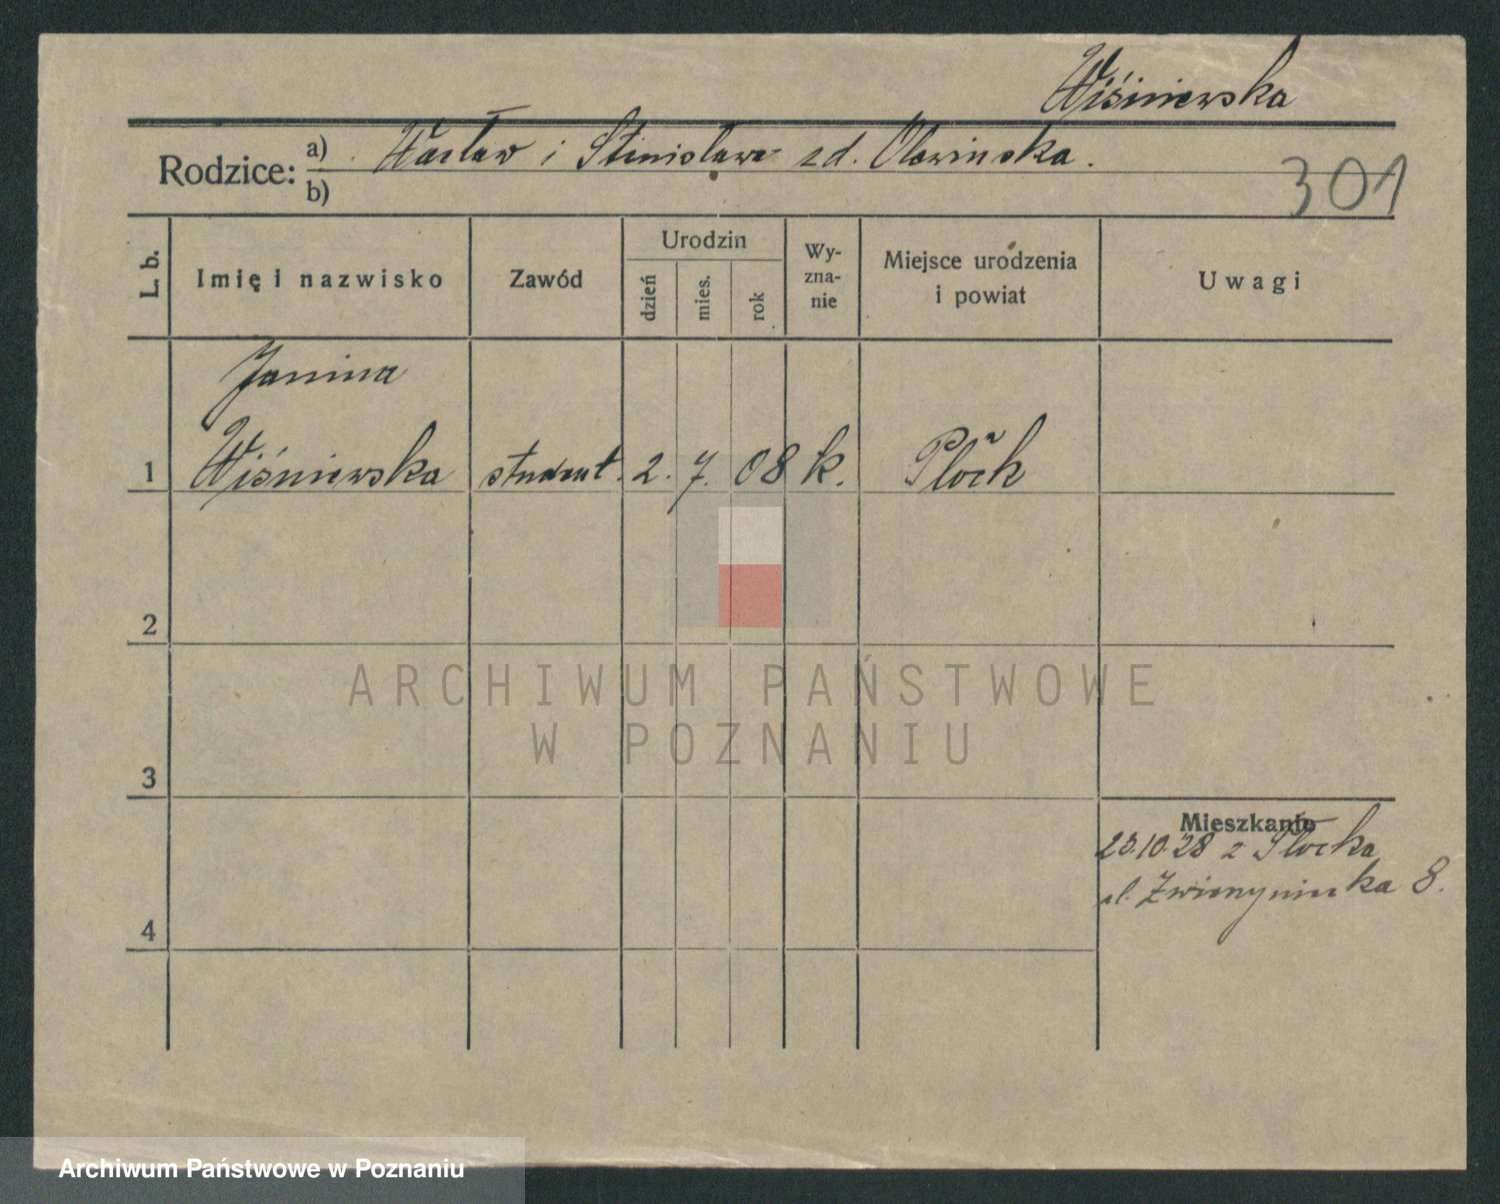 Wiśniewska
Rodzice: a) Wacław i Stanisława zd.
b)
301
L. b.
Imię i nazwisko
Zawód
Urodzin
dzień
mies.
rok
Wy-
zna-
nie
Miejsce urodzenia
i powiat
Uwagi
Janina
1 Wiśniewska student. 2. 7. 08 k. Płock
2
ARCHIWUM PAŃSTWOWE
W POZNANIU
3
Mieszkanie
23.10.28 z Płocka
ul. Zwierzyniecka 8.
4
Archiwum Państwowe w Poznaniu